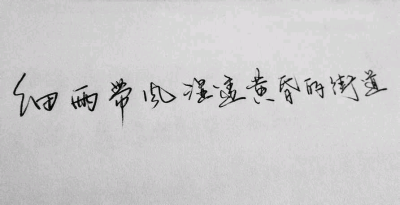 细雨带风湿透黄昏的街道